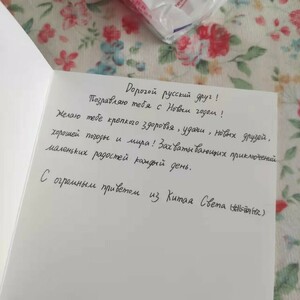 Дорогой русский друг!
Поздравляю тебя с Новым годом!
Желаю тебе крепкого здоровья, удачи, новых друзей,
хорошей погоды и мира! Захватывающих приключений
маленьких радостей каждый день.
С огромным приветом из Китая Света